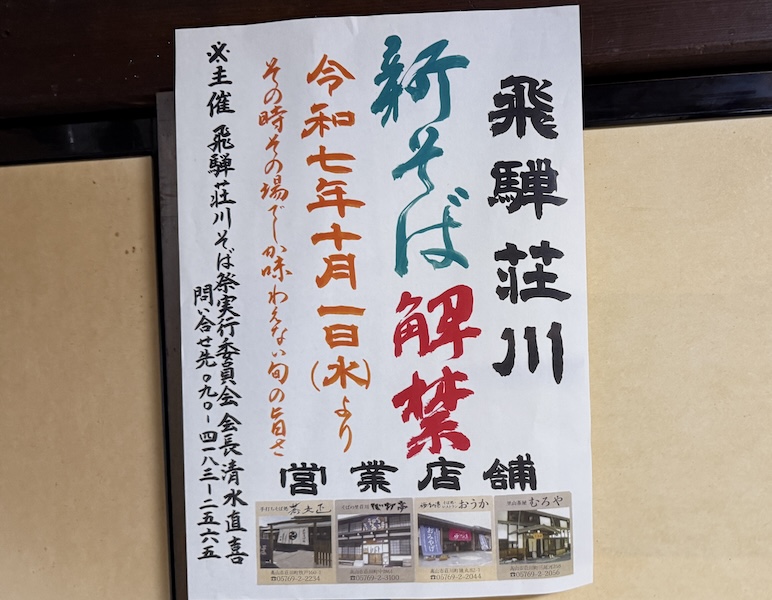 飛騨荘川
新そば解禁
令和七年十月一日(水)より
その時その場でしか味わえない旬の旨さ
※主催 飛騨荘川そば祭実行委員会 会長清水直喜
問い合せ先〇九〇-四一八三-二五六五
営業店舗
手打ちそば処
☎05769-2-2234
そばの里荘川
心打亭
☎05769-2-3100
おうか
☎05769-2-2044
むろや
☎05769-2-2056